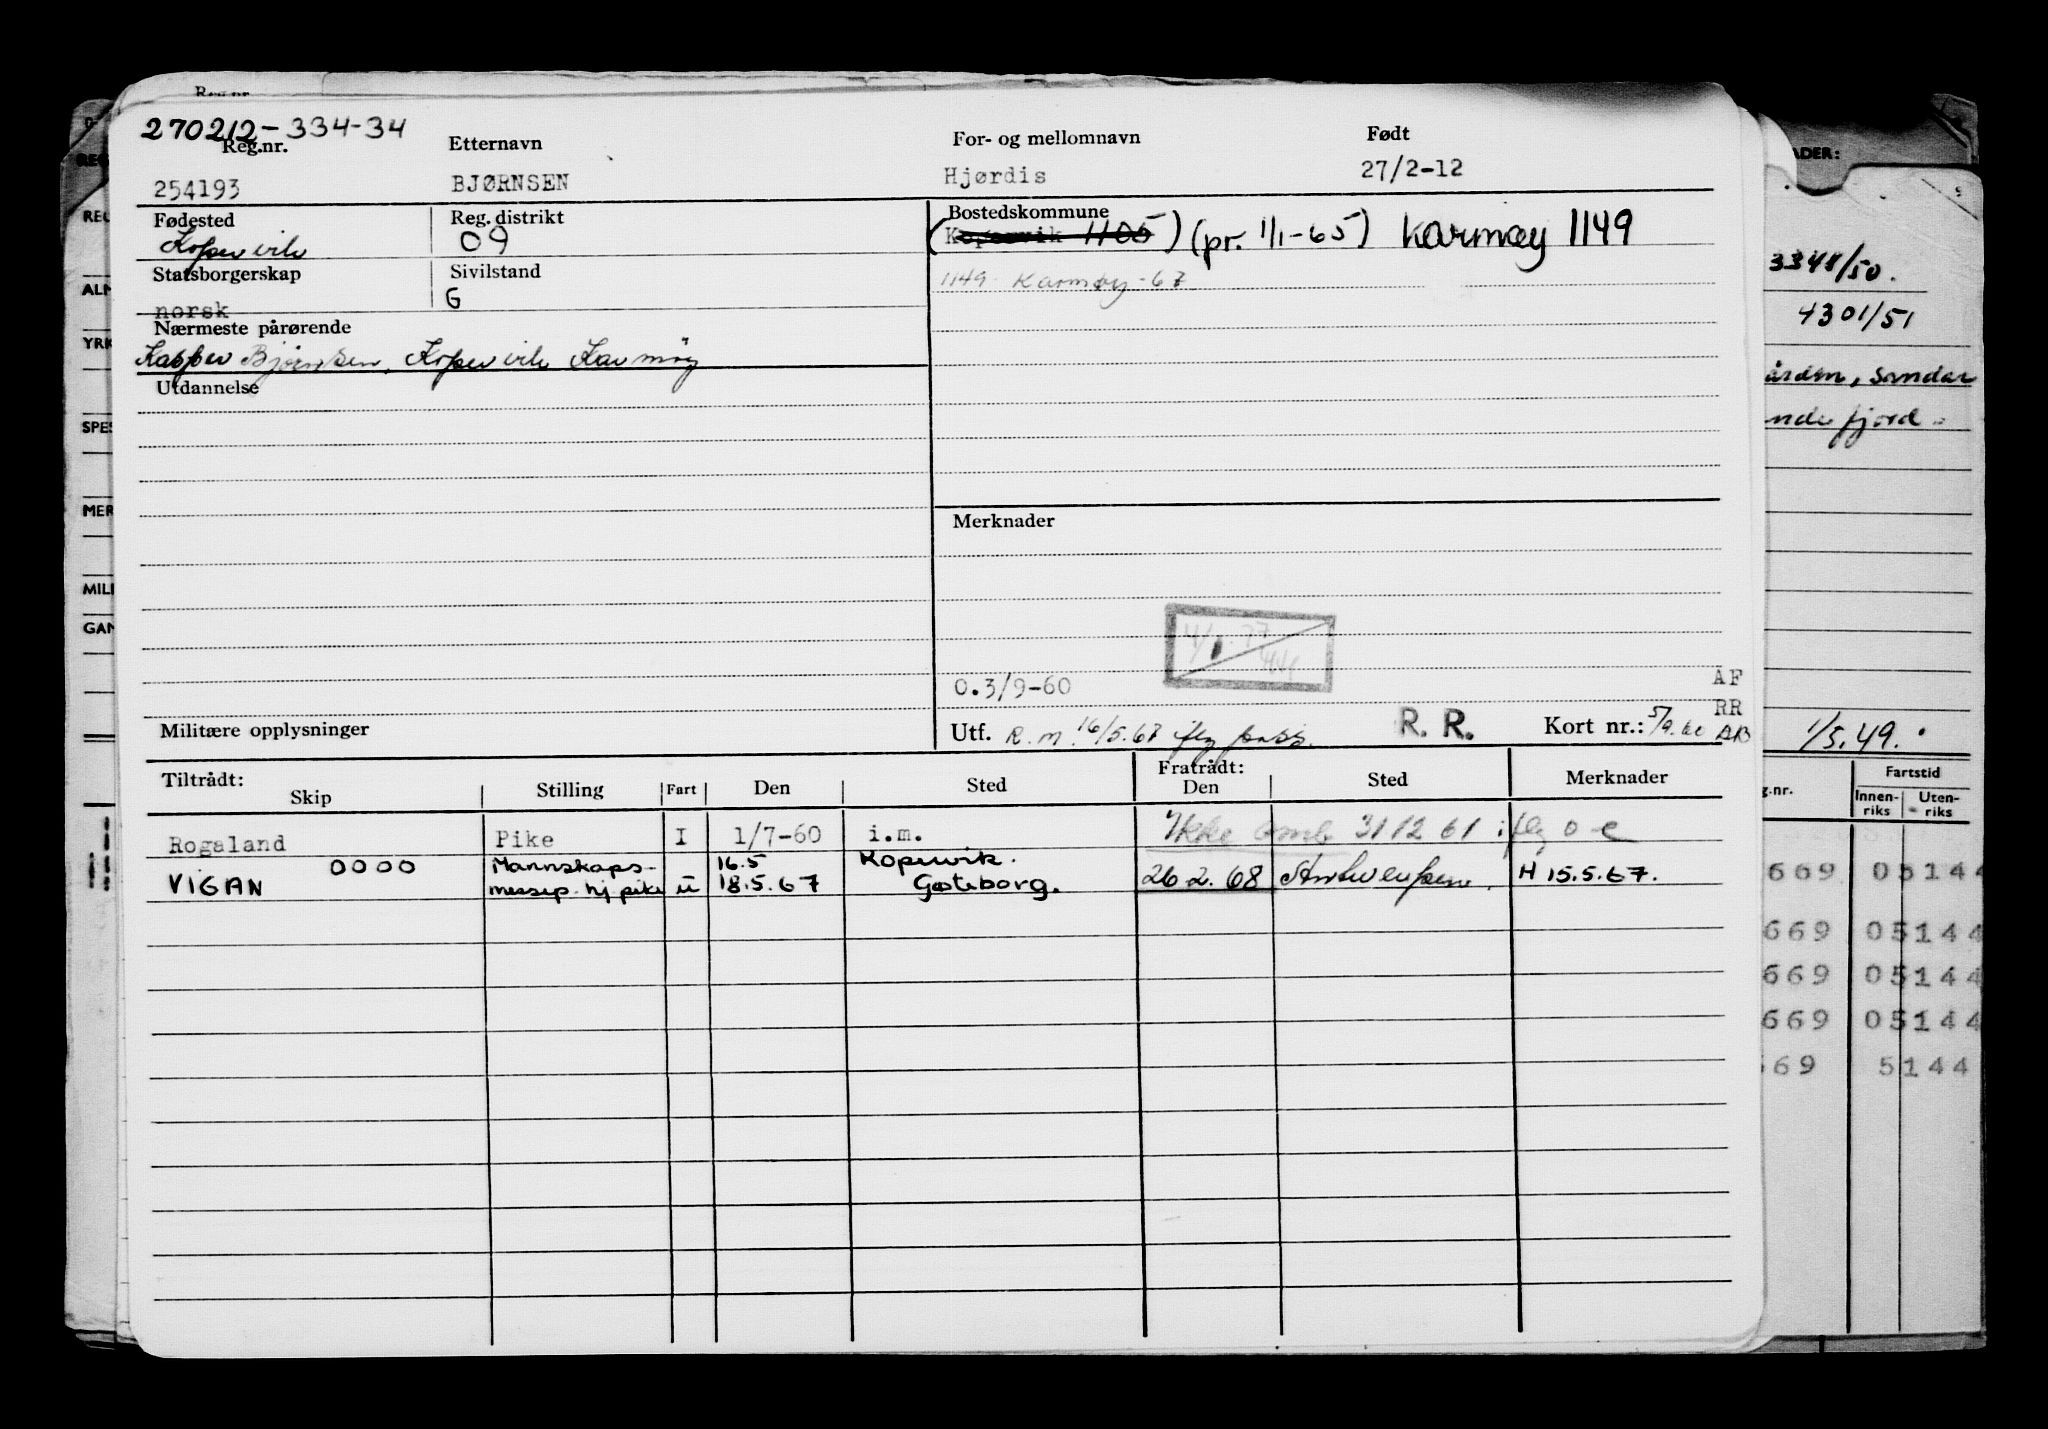 270212-334-34
Reg.nr. Etternavn For- og mellomnavn Født
254193 BJØRNSEN Hjørdis 27/2-12
Fødested Reg. distrikt Bostedskommune
Kopervik 09 (Kopervik 1105) (pr. 1/1-65) Karmøy 1149
Statsborgerskap Sivilstand
norsk G 1149 Karmøy -67
Nærmeste pårørende
Kasper Bjørnsen, Kopervik Karmøy
Utdannelse
Merknader
O.3/9-60 AF
RR
Militære opplysninger Utf. R.M. 16/5.67 iflg pass. R. R. Kort nr.: 5/9.60 AB
Tiltrådt: Fratrådt:
Skip Stilling Fart Den Sted Den Sted Merknader
Rogaland Pike I 1/7-60 i.m. Ikke omb 31 12 61 iflg o-e
VIGAN 0000 Mannskaps- 16.5 Kopervik.
messep. hj pike U 18.5.67 Gøteborg. 26.2.68 Antwerpen. H 15.5.67.
REG
ALM
YRK
SPES
MER
MILI
GAN
ADER:
3348/50.
4301/51
ården, Sandar
ndefjord.
1/5.49.
g.nr. Fartstid
Innen-riks Uten-riks
669 05144
669 05144
669 05144
669 05144
69 5144